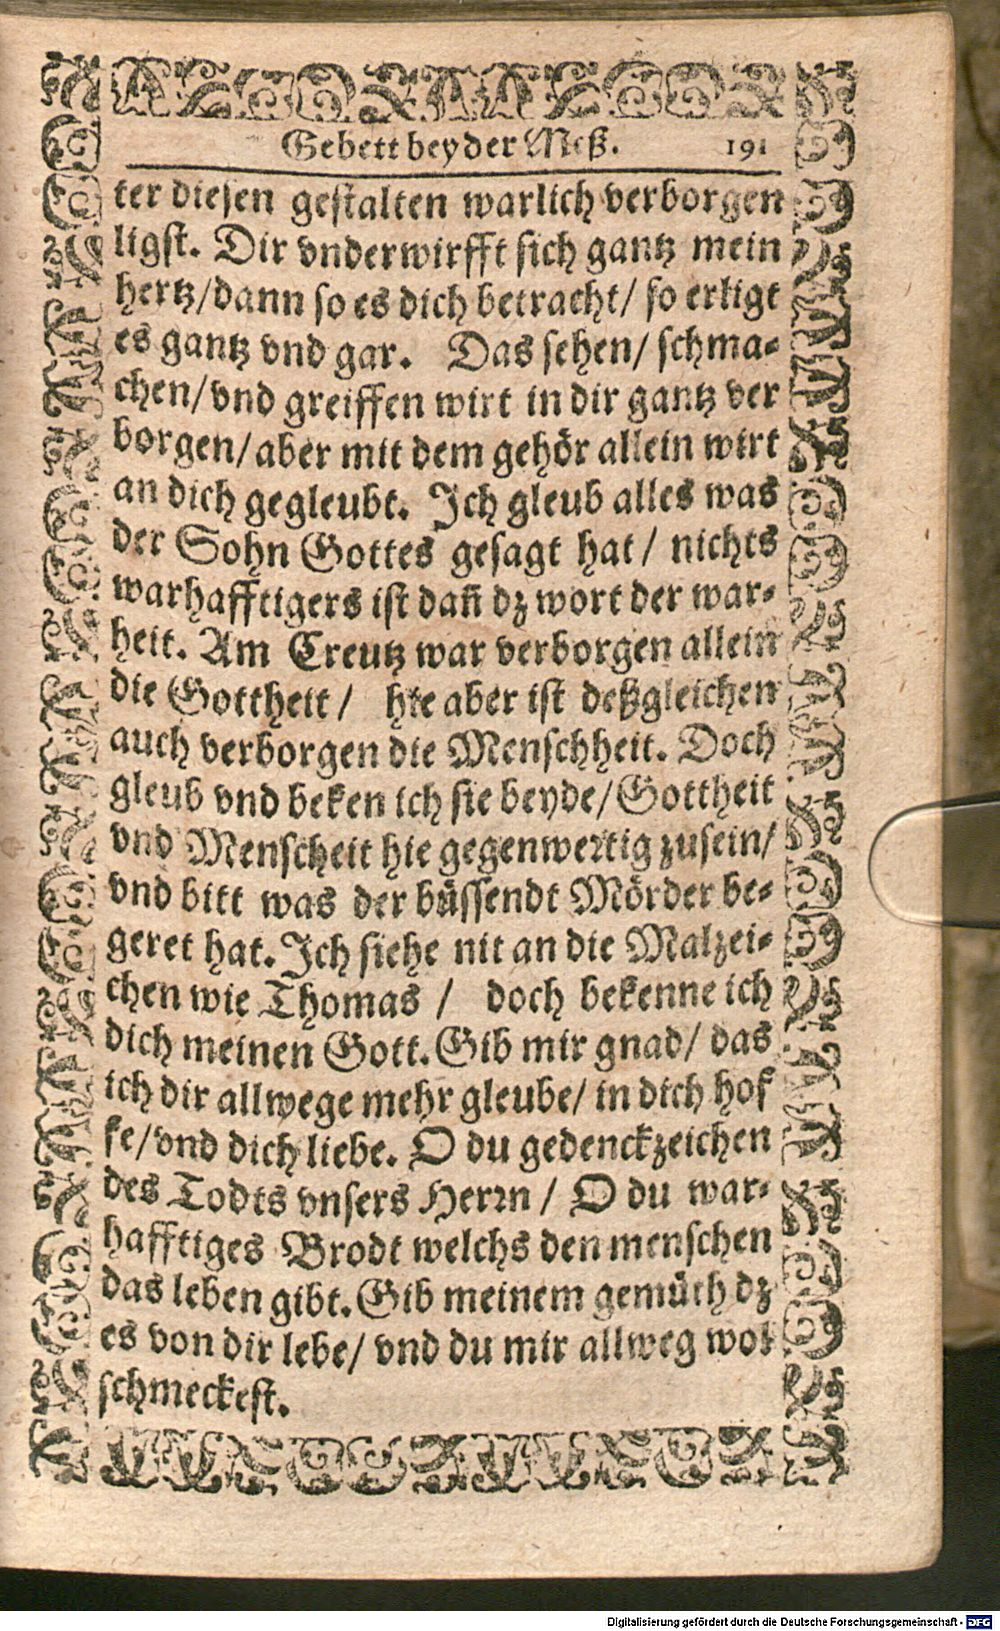 Gebett bey der Meß. 191
ter diesen gestalten warlich verborgen
ligst. Dir vnderwirfft sich gantz mein
hertz/dann so es dich betracht/ so erligt
es gantz vnd gar. Das sehen/ schma-
chen/vnd greiffen wirt in dir gantz ver
borgen/aber mit dem gehör allein wirt
an dich gegleubt. Ich gleub alles was
der Sohn Gottes gesagt hat/ nichts
warhafftigers ist dañ dz wort der war-
heit. Am Creutz war verborgen allein
die Gottheit/ hie aber ist deßgleichen
auch verborgen die Menschheit. Doch
gleub vnd beken ich sie beyde/Gottheit
vnd Menscheit hie gegenwertig zusein/
vnd bitt was der büssendt Mörder be-
geret hat. Ich siehe nit an die Malzei-
chen wie Thomas / doch bekenne ich
dich meinen Gott. Gib mir gnad/ das
ich dir allwege mehr gleube/ in dich hof
fe/vnd dich liebe. O du gedenckzeichen
des Todts vnsers Herrn / O du war-
hafftiges Brodt welchs den menschen
das leben gibt. Gib meinem gemüth dz
es von dir lebe/ vnd du mir allweg wol
schmeckest.
Digitalisierung gefördert durch die Deutsche Forschungsgemeinschaft - DFG